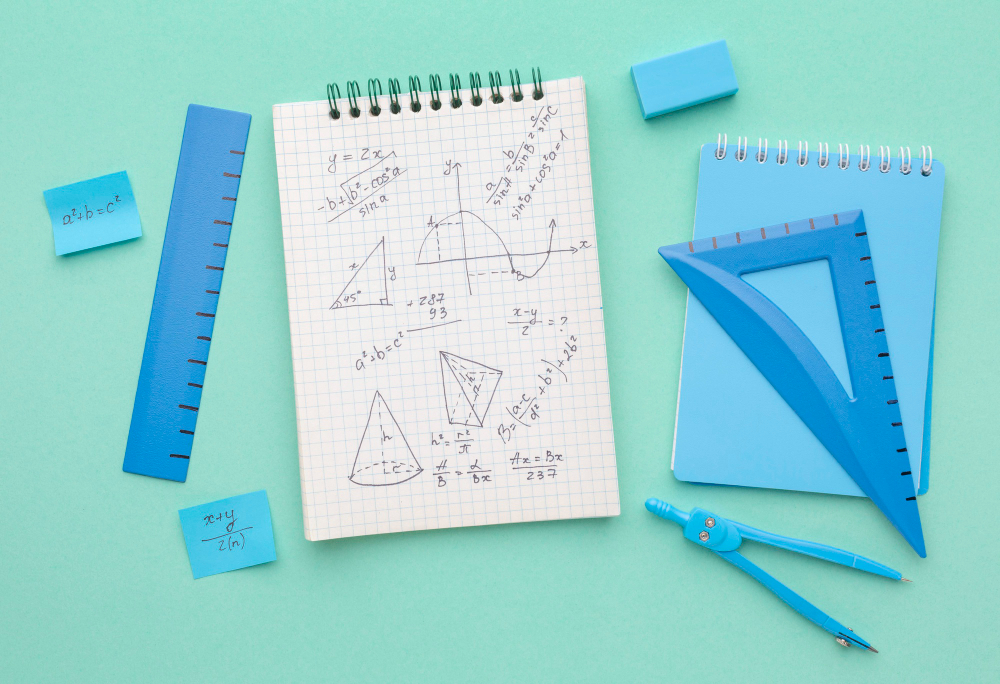 a²+b=c²
y = 2x
-b+√b²-cos²a
sin a
a/sin A = b/sin B = c/sin C
sin²a + cos²a = 1
y
A
x
B
x
y
45°
+ 287
93
x-y
2
= ?
a²+b=c²
h
B=(a-c/a² + b²)+2b²
h
r
h² = r²/π
A/B = L/Bx
Ax = Bx
237
x+y
2(n)